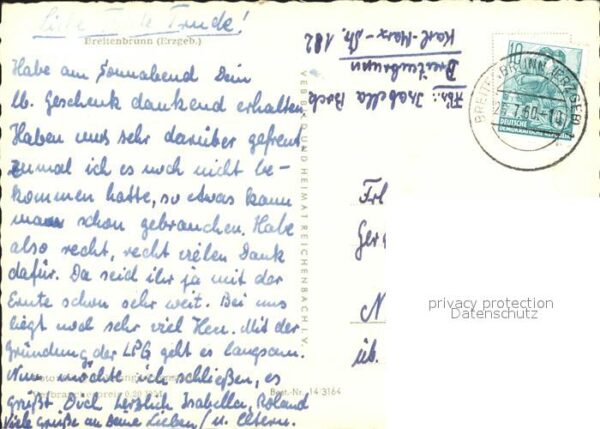 Liebe Trude!
Breitenbrunn (Erzgeb.)
Habe am Sonnabend Dein
lb. Geschenk dankend erhalten
Haben uns sehr darüber gefreut
zumal ich es noch nicht be-
kommen hatte, so etwas kann
man schon gebrauchen. Habe
also recht, recht vielen Dank
dafür. Da seid ihr ja mit der
Ernte schon sehr weit. Bei uns
liegt noch sehr viel Heu. Mit der
Gründung der LPG geht es langsam.
Nun möchte ich schließen, es
grüßt Dich herzlich Isabella, Roland
Viele Grüße an Deine Lieben / u. Eltern.
Best.-Nr. 14 3164
VEB BILD UND HEIMAT REICHENBACH I. V.
Abs.: Isabella Bock
Breitenbrunn
Karl-Marx-Str. 182
10
DEUTSCHE
DEMOKRATISCHE REPUBLIK
BREITENBRUNN (ERZGEB)
Frl
Ger
N
üb.
privacy protection
Datenschutz